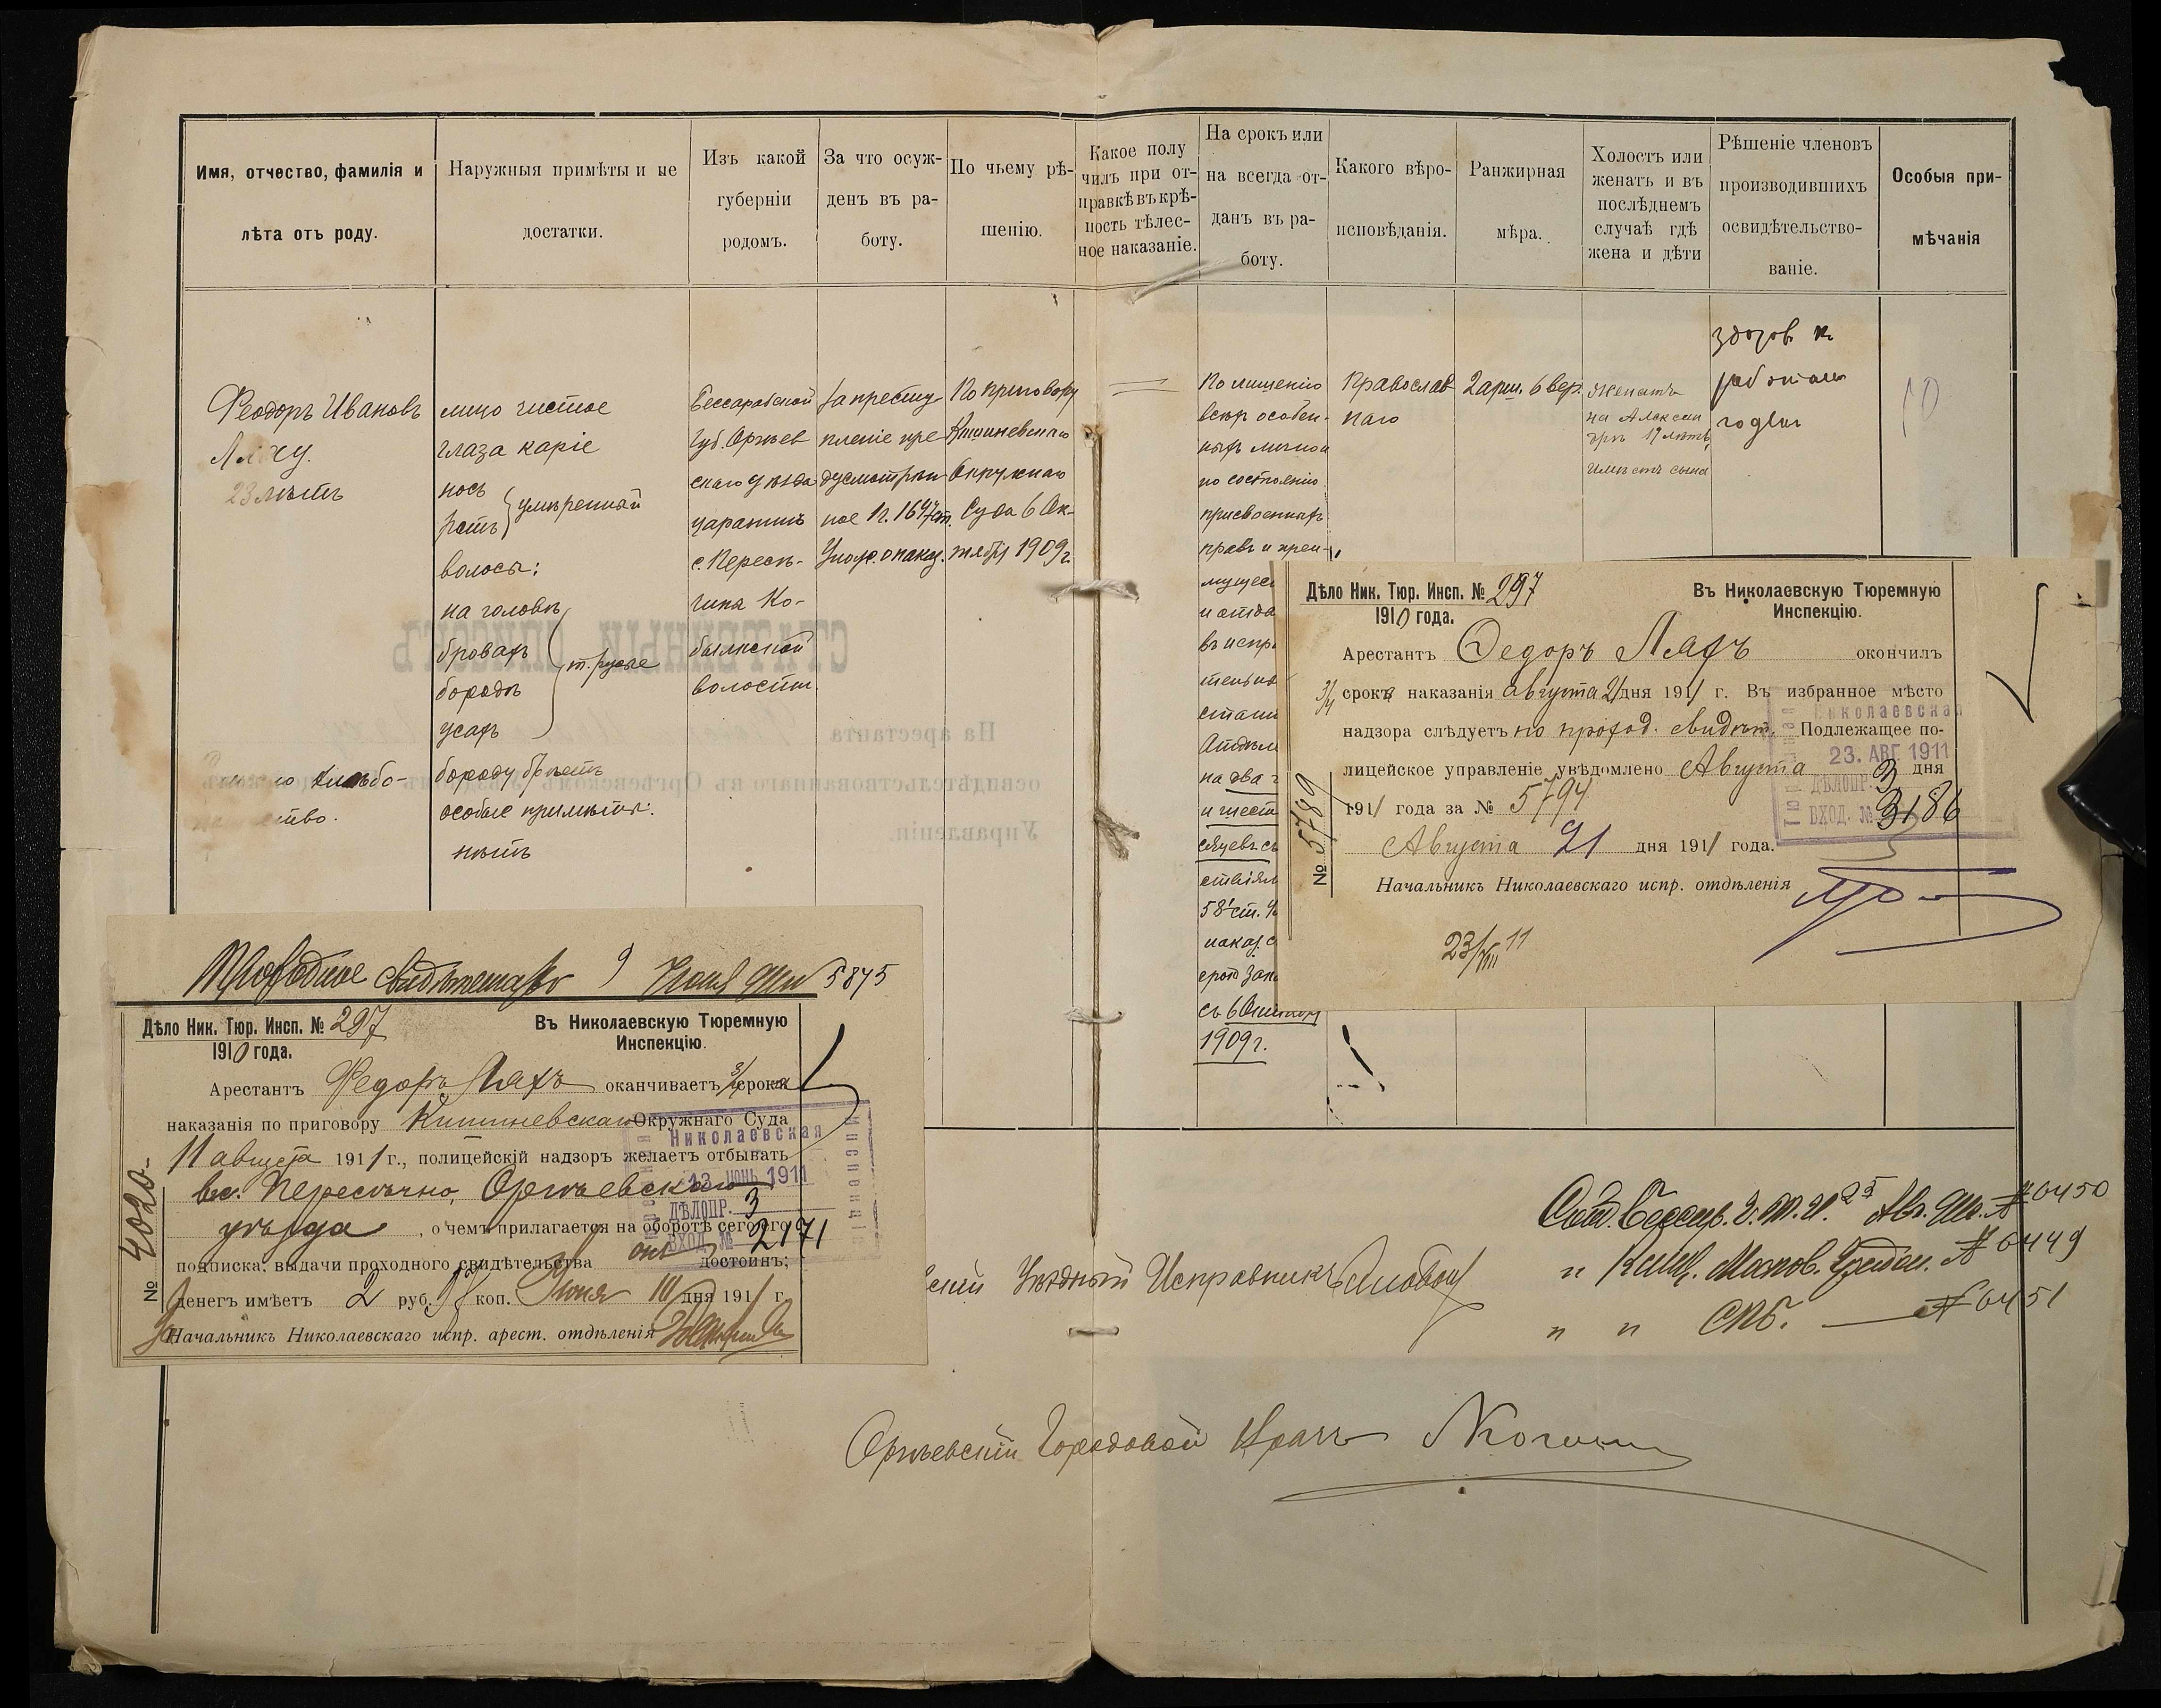 Имя, отчество, фамилія и
лѣта отъ роду.
Наружныя примѣты и не
достатки.
Изъ какой
губерніи
родомъ.
За что осуж-
денъ въ ра-
боту.
По чьему рѣ-
шенію.
Какое полу
чилъ при от-
правкѣ въ крѣ-
пость тѣлес-
ное наказаніе.
На срокъ или
на всегда от-
данъ въ ра-
боту.
Какого вѣро-
исповѣданія.
Ранжирная
мѣра.
Холостъ или
женатъ и въ
послѣднемъ
случаѣ гдѣ
жена и дѣти
Рѣшеніе членовъ
производившихъ
освидѣтельство-
ваніе.
Особыя при-
мѣчанія
Феодоръ Ивановъ
Ляху.
23 лѣтъ
лицо чистое
глаза каріе
носъ
ротъ
умѣренный
волосы:
на головѣ
бровахъ
бородѣ
усахъ
т. русые
бороду брѣетъ
особые примѣты:
нѣтъ
Бессарабской
губ. Оргѣев
скаго уѣзда
царанинъ
с. Пересѣ-
чина Ко-
былкской
волости.
за престу
пленіе пре
дусмотрѣн
ное 1 ч. 1647 ст.
Улож. о наказ.
По приговору
Кишиневскаго
Окружнаго
Суда 6 Ок-
тября 1909 г.
По лишеніи
всѣхъ особен-
ныхъ лично и
по состоянію
присвоенныхъ
правъ и преи-
мущес
и отда
въ испр
тельно
стант
Отдѣл
на два г
и шест
сяцевъ съ
ствіям
58 ст. У
наказ. с
срокъ зак
съ 6 Октября
1909 г.
Православ
наго
2 арш. 6 вер.
Женатъ
на Алексан
дрѣ 19 лѣтъ
имѣетъ сына
здоровъ къ
работамъ
годенъ
10
Дѣло Ник. Тюр. Инсп. № 297
1910 года.
Въ Николаевскую Тюремную
Инспекцію.
Арестантъ Федоръ Ляхъ окончилъ
3/4 срокъ наказанія августа 21 дня 1911 г. Въ избранное мѣсто
надзора слѣдуетъ по проход. свидѣт. Подлежащее по-
лицейское управленіе увѣдомлено Августа 3 дня
1911 года за № 5794
Августа 21 дня 1911 года.
№ 5789
Начальникъ Николаевскаго испр. отдѣленія
23/VIII 11
Николаевская
23. АВГ 1911
ДѢЛОПР. 3
ВХОД. № 3186
Проходное свидѣтельство 9 Іюня 911 № 5875
Дѣло Ник. Тюр. Инсп. № 297
1910 года.
Въ Николаевскую Тюремную
Инспекцію.
Арестантъ Федоръ Ляхъ оканчиваетъ 3/4 срока
наказанія по приговору Кишиневскаго Окружнаго Суда
11 августа 1911 г., полицейскій надзоръ желаетъ отбывать
въ с. Пересѣчно, Оргѣевскаго
уѣзда, о чемъ прилагается на оборотѣ сего его
подписка; выдачи проходного свидѣтельства онъ достоинъ;
денегъ имѣетъ 2 руб. коп. Іюня 10 дня 1911 г.
№ 4020
Начальникъ Николаевскаго испр. арест. отдѣленія
Николаевская
13 ІЮНЬ 1911
ДѢЛОПР. 3
ВХОД. № 2171
Инспекція
скій Уѣздный Исправникъ
№ 6450
№ 6449
" " СПБ. — № 6451
Оргѣевскій Городовой Врачъ
СТАТЕЙНЫЙ СПИСОКЪ
На арестанта
освидѣтельствованнаго въ Оргѣевскомъ
Управленіи